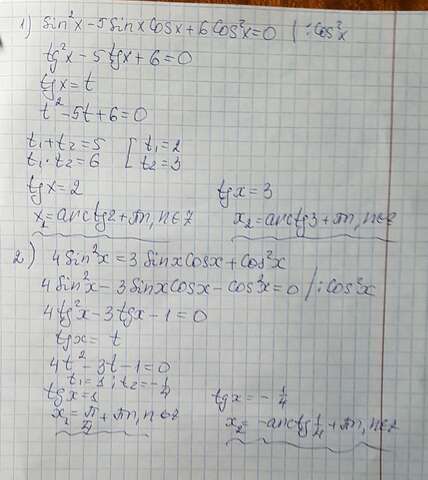 1) sin²x - 5sinxcosx + 6cos²x = 0 | : cos²x
tg²x - 5tgx + 6 = 0
tgx = t
t² - 5t + 6 = 0
t₁ + t₂ = 5 [ t₁ = 2
t₁ · t₂ = 6 [ t₂ = 3
tgx = 2 tgx = 3
x₁ = arctg2 + πn, n∈Z x₂ = arctg3 + πn, n∈Z
2) 4sin²x = 3sinxcosx + cos²x
4sin²x - 3sinxcosx - cos²x = 0 / : cos²x
4tg²x - 3tgx - 1 = 0
tgx = t
4t² - 3t - 1 = 0
t₁ = 1; t₂ = -1/4
tgx = 1 tgx = -1/4
x₁ = π/4 + πn, n∈Z x₂ = -arctg1/4 + πn, n∈Z